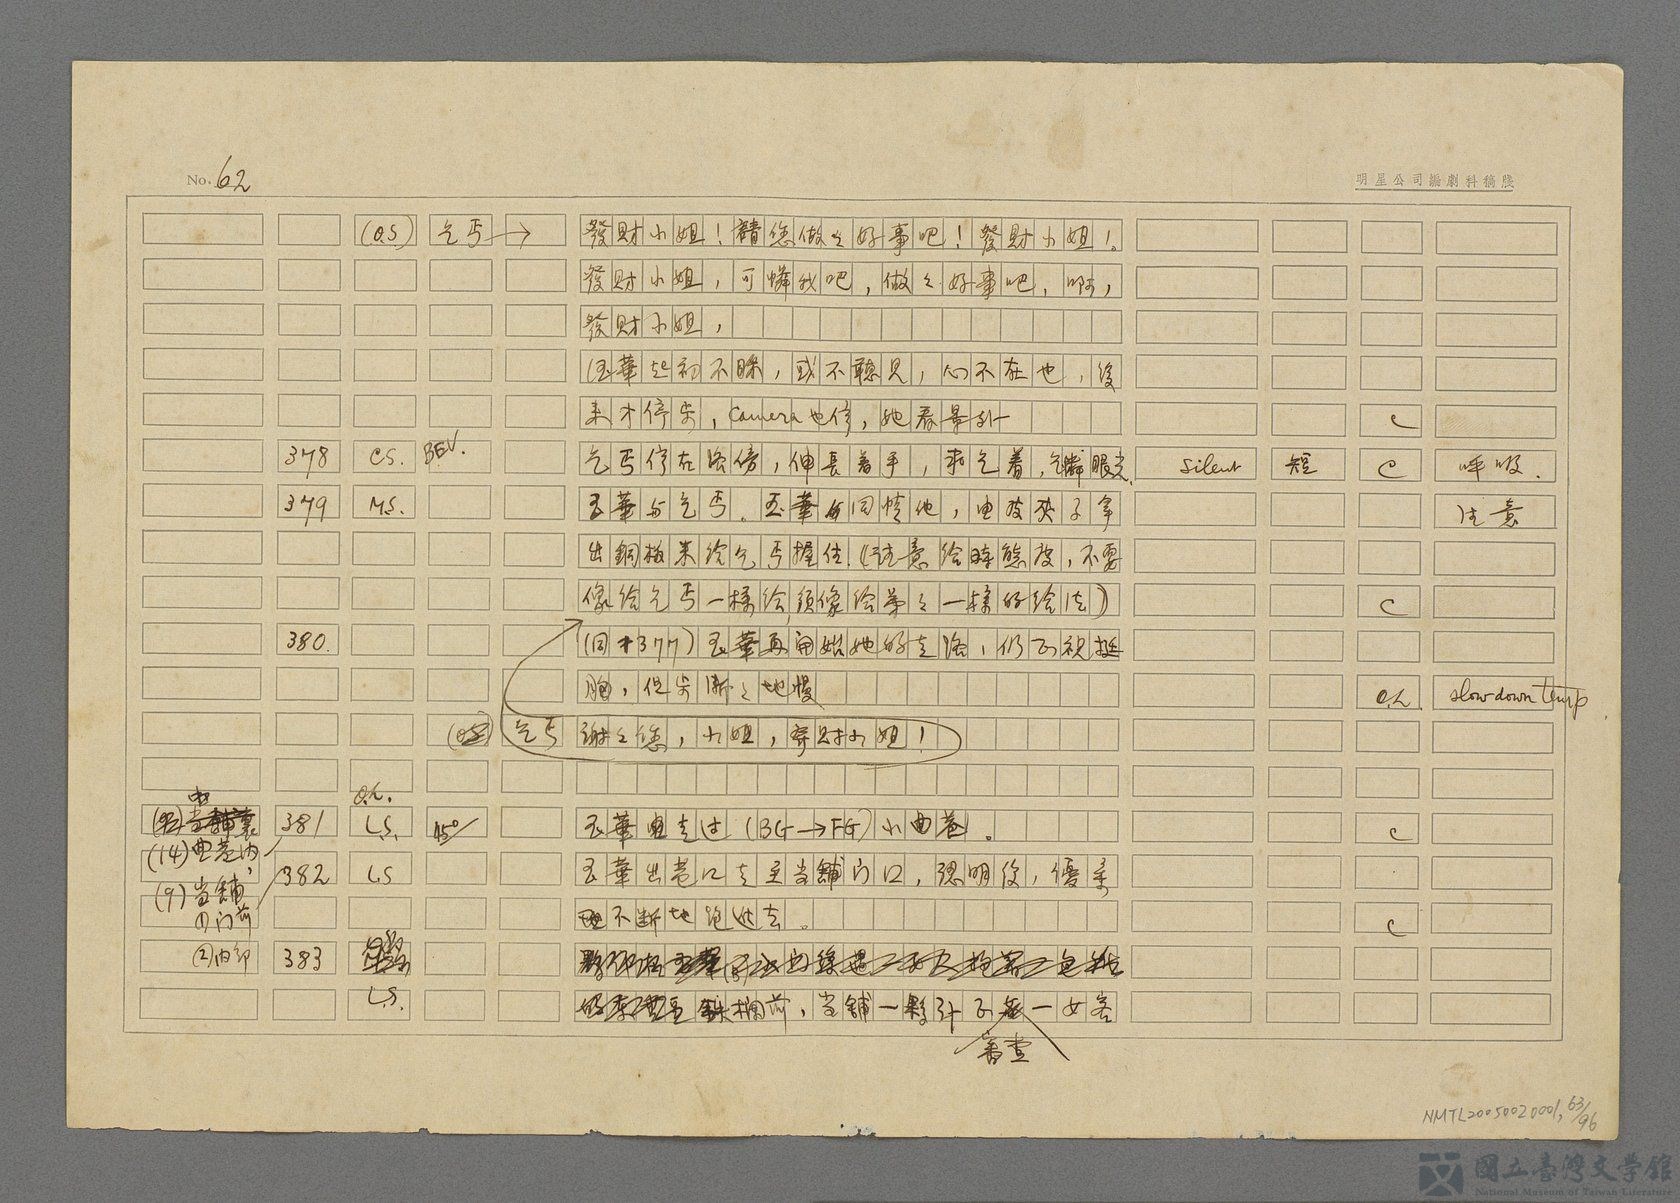 No. 62
明星公司編劇科稿牋
(O.S) 乞丐→ 發財小姐！請您做々好事吧！發財小姐！。
發財小姐，可憐我吧，做々好事吧，啊，
發財小姐，
(玉華起初不睬，或不聽見，心不在也，後
來才停步，Camera也停，她看景外 C
378 CS. BEV. 乞丐停在路傍，伸長着手，求乞着，乞憐眼光. silent 短 C 呼吸.
379 M.S. 玉華与乞丐。玉華同情他，由皮夾子拿 注意
出銅板来给乞丐握住.(注意给時態度，不要
像给乞丐一樣给，須像给弟々一樣的给法) C
380. (同#377) 玉華再開始她的走路，仍正視挺
胸，但步漸々地慢 O.L. slow down temp.
(OS) 乞丐 謝々您，小姐，發財小姐！
O.L.
381 L.S. 45° 玉華走过 (BG→FG) 小曲巷。 C
(14) 曲巷内
382 L.S 玉華出巷口走至当舖门口，
(9) 当舖
①门前 不断地跑进去。 C
②内部 383
L.S. 鉄柵前，当舖一夥计正 一女客
審查
NMTL20050020001, 63/96
國立臺灣文學館
National Museum of Taiwan Literature